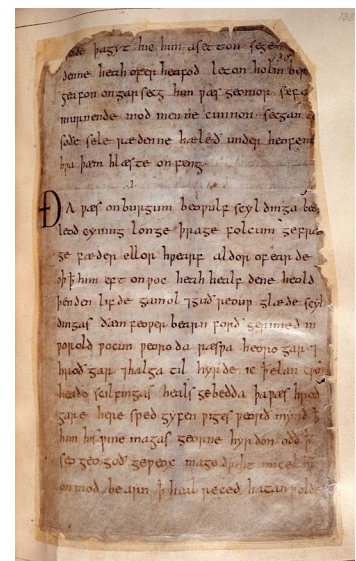 þagyt hie him asetton segen
denne heah ofer heafod leton holm
geafon on garsecg him ƿæs geomor sefa
murnende mod men ne cunnon secgan
soðe sele rædenne hæleð under
hƿa þæm hlæste onfeng
ÐA ƿæs on burgum beoƿulf scyldinga
leod cyning longe þrage folcum gefræ
ge fæder ellor hƿearf aldor of earde
oþ ꝥ him eft onƿoc heah healfdene heold
þenden lifde gamol ⁊ guð reouƿ glæde scyl
dingas ðæm feoƿer bearn forð gerimed in
ƿorold ƿocun ƿeoroda ræsƿa heoro gar ⁊
hroð gar ⁊ halga til hyrde ic ꝥ elan
heaðo scilfingas heals gebedda þa ƿæs hroð
gare here sped gyfen ƿiges ƿeorð mynd ꝥ
him his ƿine magas georne hyrdon
seo geogoð geƿeox mago driht micel
on mod be arn ꝥ heal reced hatan ƿolde